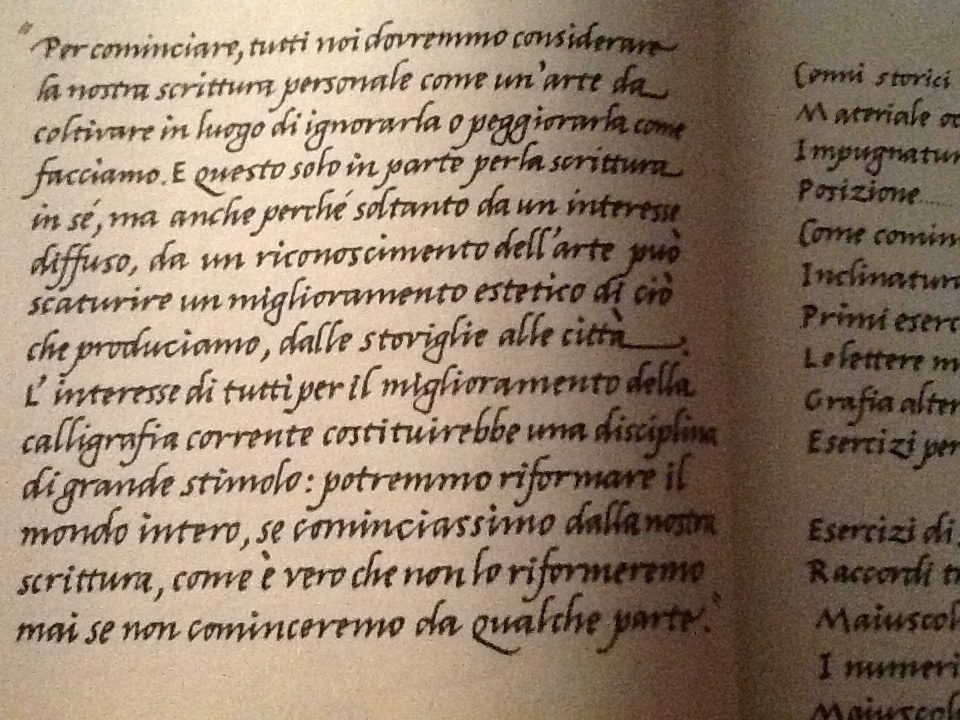 "Per cominciare, tutti noi dovremmo considerare
la nostra scrittura personale come un'arte da
coltivare in luogo di ignorarla o peggiorarla come
facciamo. E questo solo in parte per la scrittura
in sé, ma anche perché soltanto da un interesse
diffuso, da un riconoscimento dell'arte può
scaturire un miglioramento estetico di ciò
che produciamo, dalle stoviglie alle città.
L'interesse di tutti per il miglioramento della
calligrafia corrente costituirebbe una disciplina
di grande stimolo: potremmo riformare il
mondo intero, se cominciassimo dalla nostra
scrittura, come è vero che non lo riformeremo
mai se non cominceremo da qualche parte".
Cenni storici
Materiale oc
Impugnatur
Posizione
Come comin
Inclinatura
Primi eserc
Le lettere m
Grafia alter
Esercizi per
Esercizi di
Raccordi tr
Maiuscol
I numeri
Maiuscol